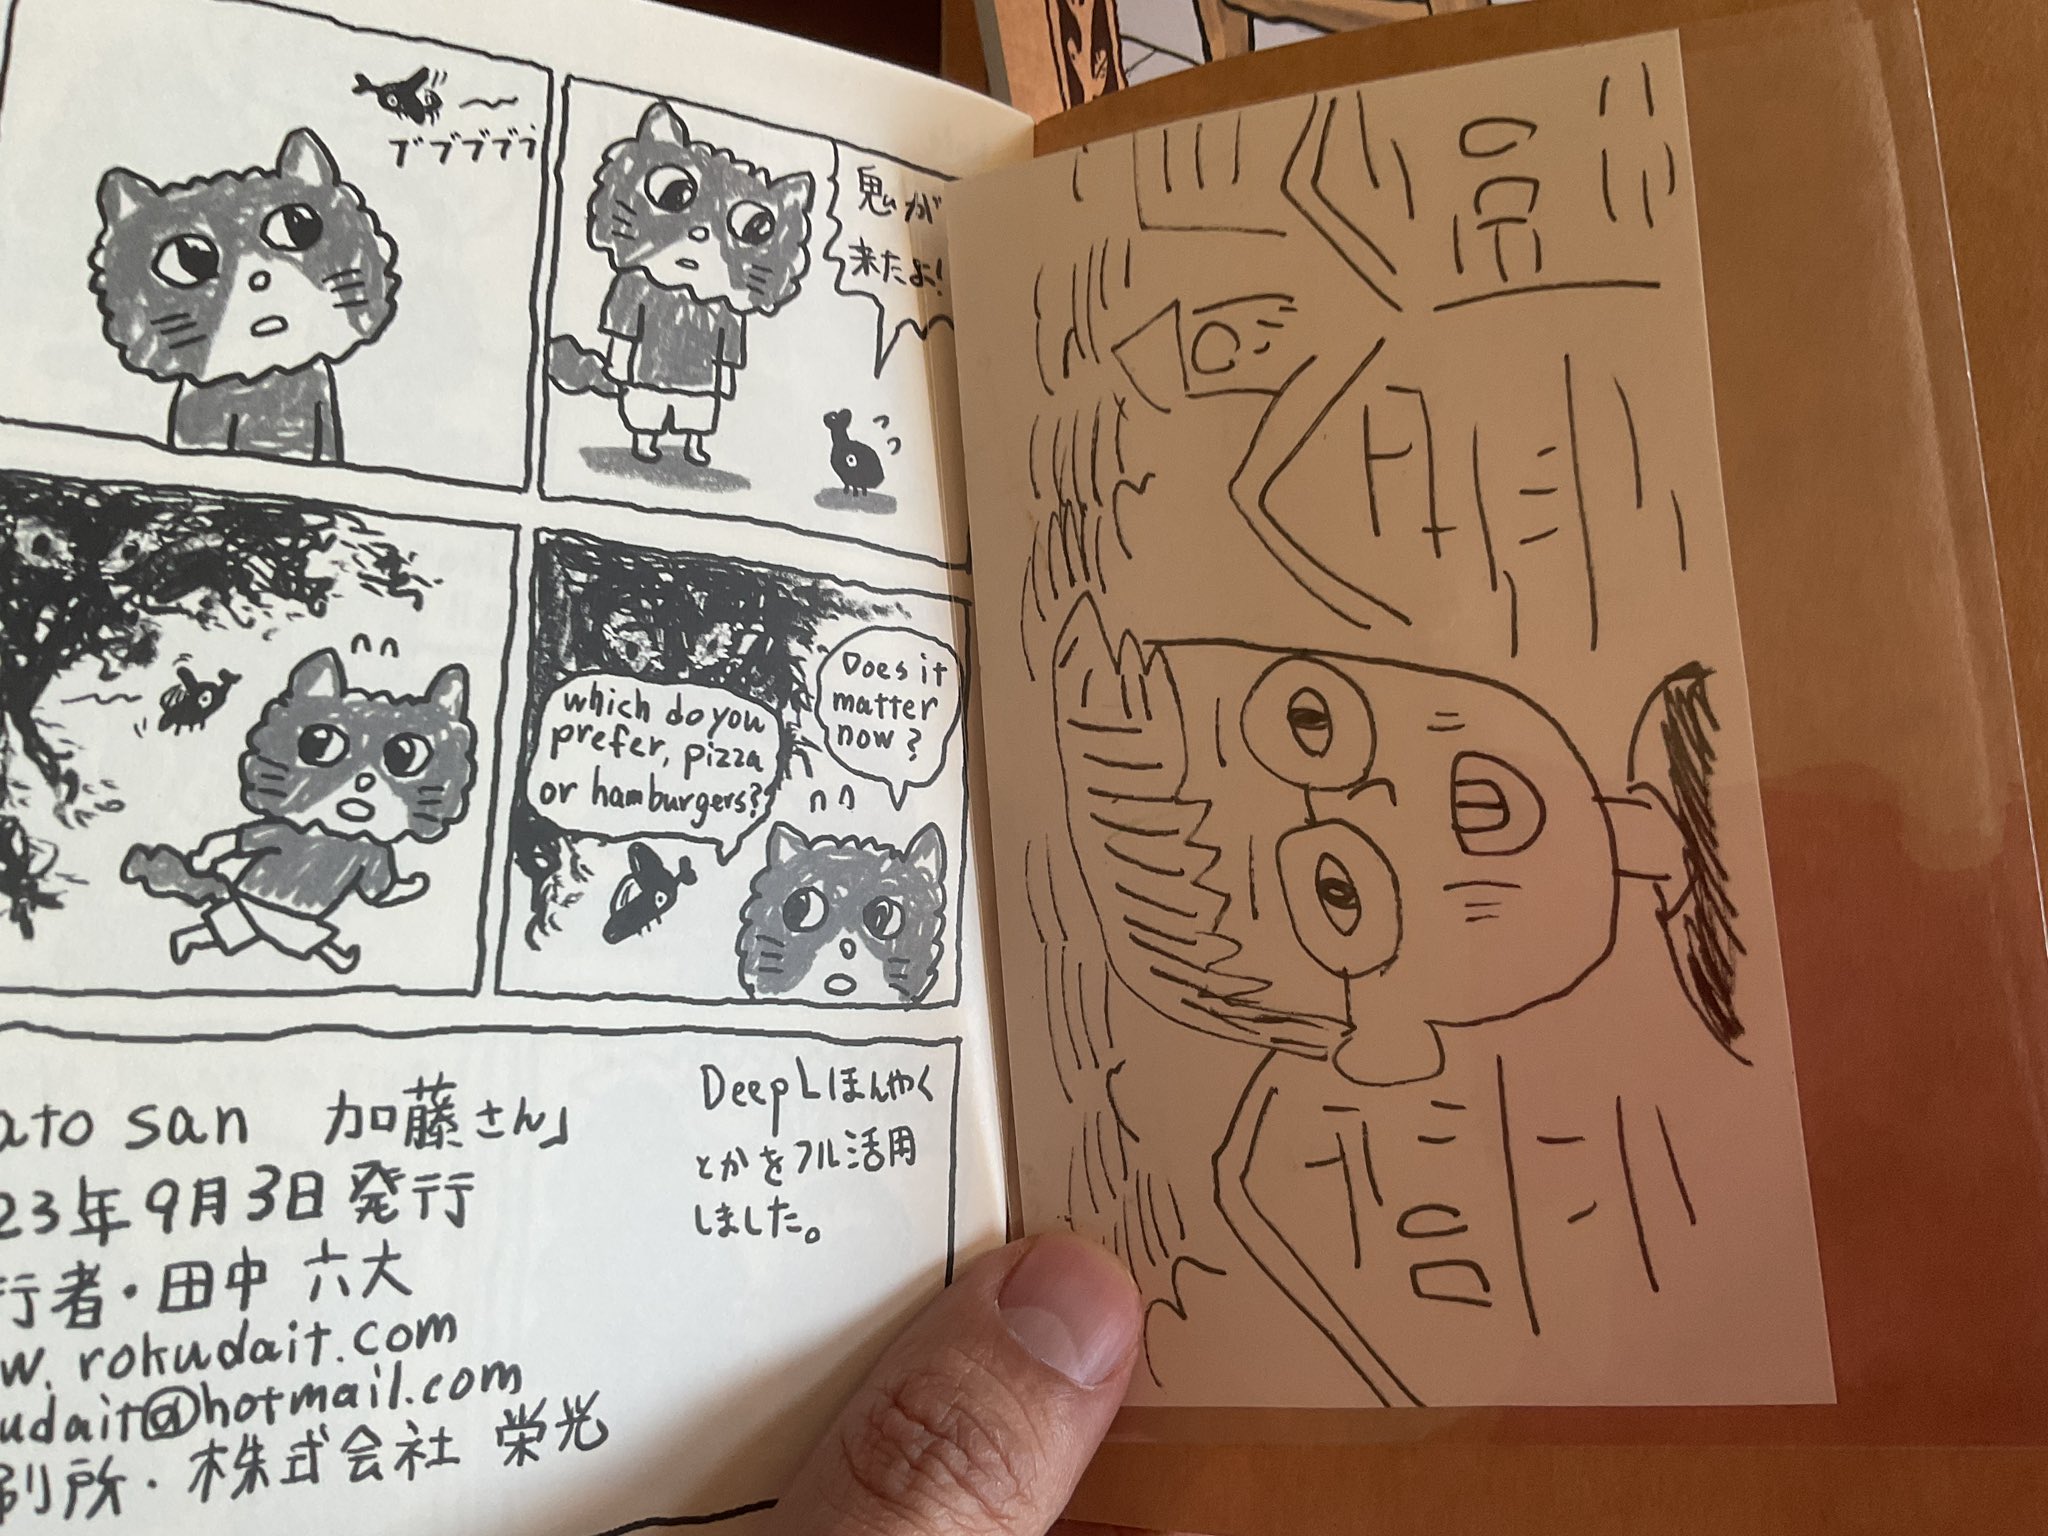 ブブブブブ
鬼が
来たよ!
which do you
prefer, pizza
or hamburgers?
Does it
matter
now?
ato san 加藤さん」
23年9月3日発行
行者・田中 六大
w.rokudait.com
udait@hotmail.com
刷所・株式会社 栄光
DeepLほんやく
とかをフル活用
しました。